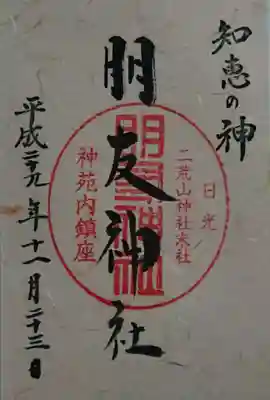 知恵の神
朋友神社
平成二十九年十一月二十三日
日光
二荒山神社末社
朋友神社
神苑内鎮座